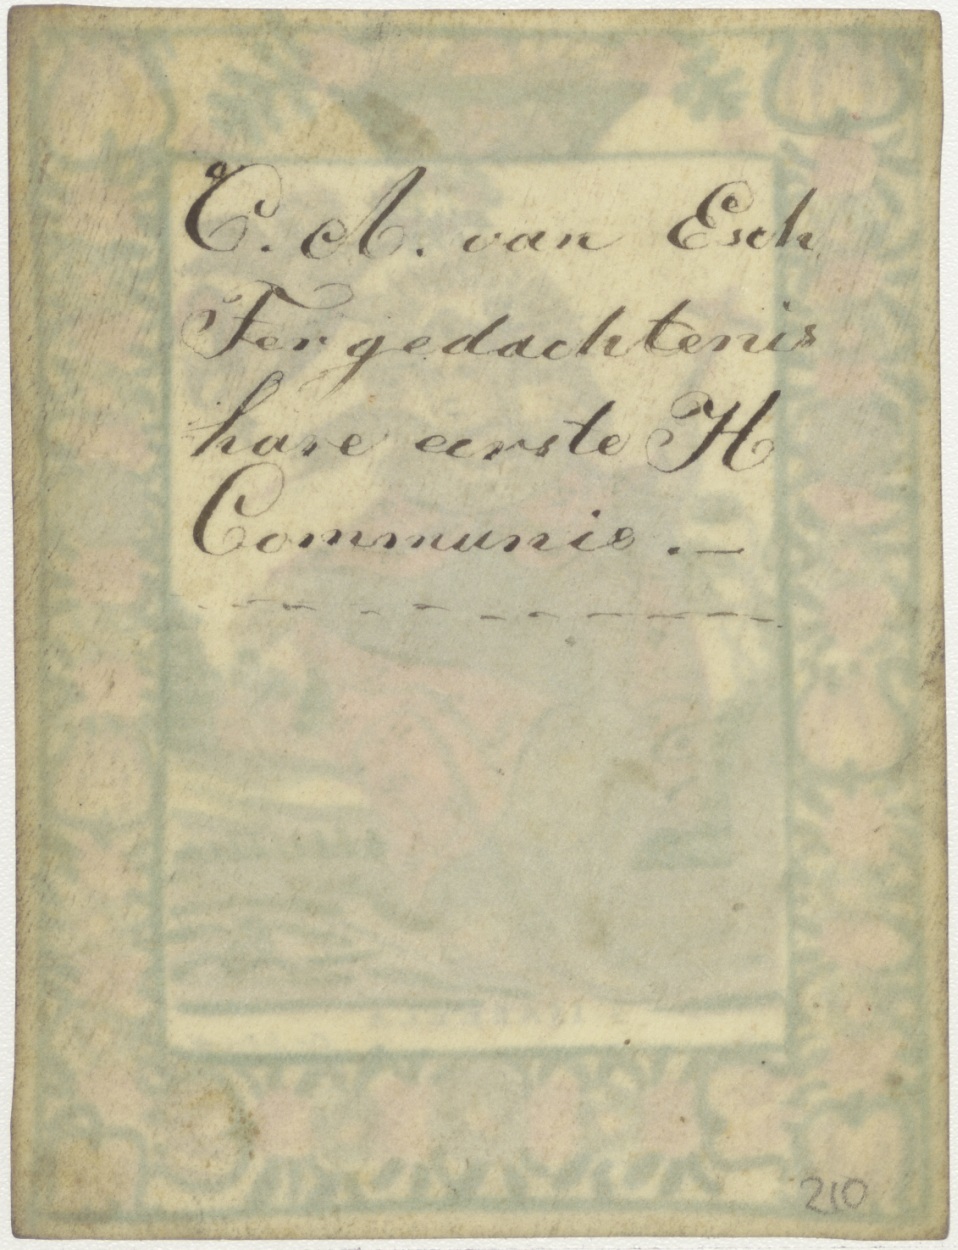 C. A. van Esch
Ter gedachtenis
hare eerste H
Communie. —
210